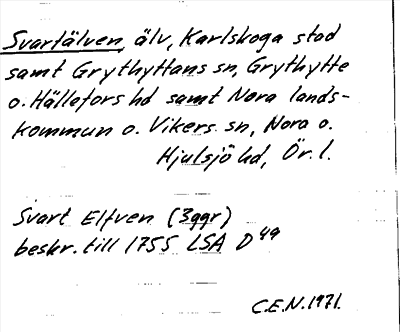 Svartälven, älv, Karlskoga stad
samt Grythyttans sn, Grythytte
o. Hällefors hd samt Nora lands-
kommun o. Vikers sn, Nora o.
Hjulsjö hd, Ör. l.
Svart Elfven (3ggr)
beskr. till 1755 LSA D49
C.E.N. 1971.